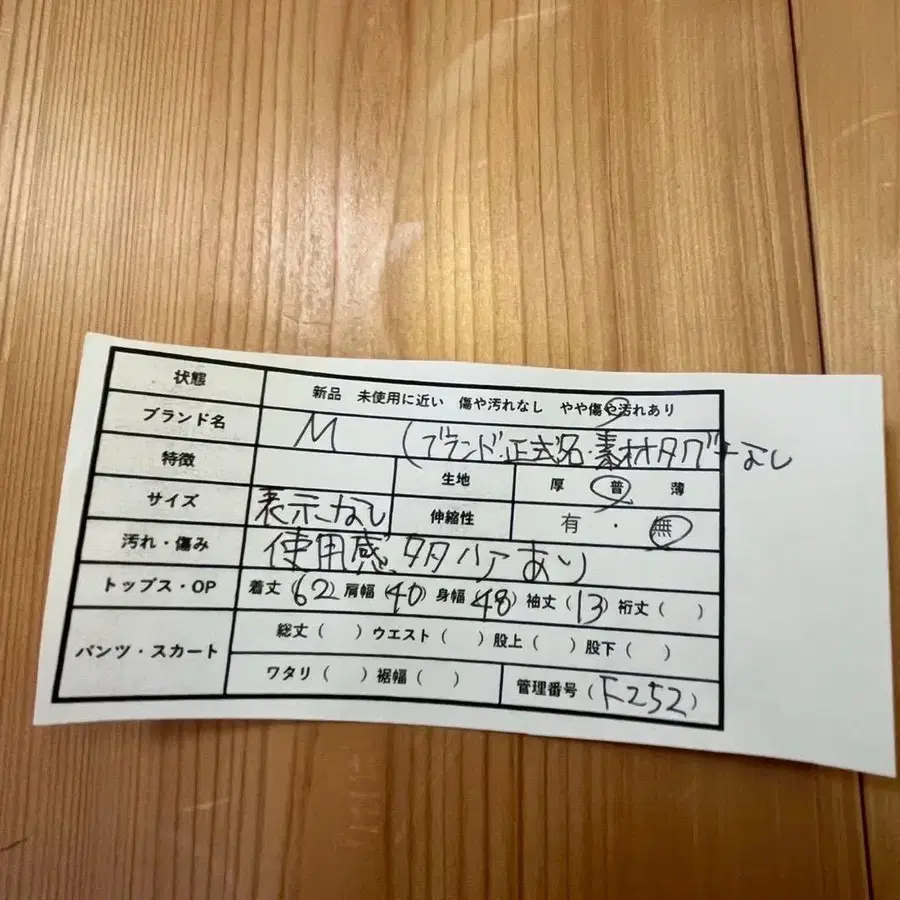 状態 新品 未使用に近い 傷や汚れなし やや傷や汚れあり
ブランド名 M (ブランド正式名・素材タグなし
特徴 生地 厚 普 薄
サイズ 表示なし 伸縮性 有 ・ 無
汚れ・傷み 使用感、タタ あり
トップス・OP 着丈(62) 肩幅(40) 身幅(48) 袖丈(13) 裄丈( )
パンツ・スカート 総丈( ) ウエスト( ) 股上( ) 股下( )
ワタリ( ) 裾幅( ) 管理番号(F252)